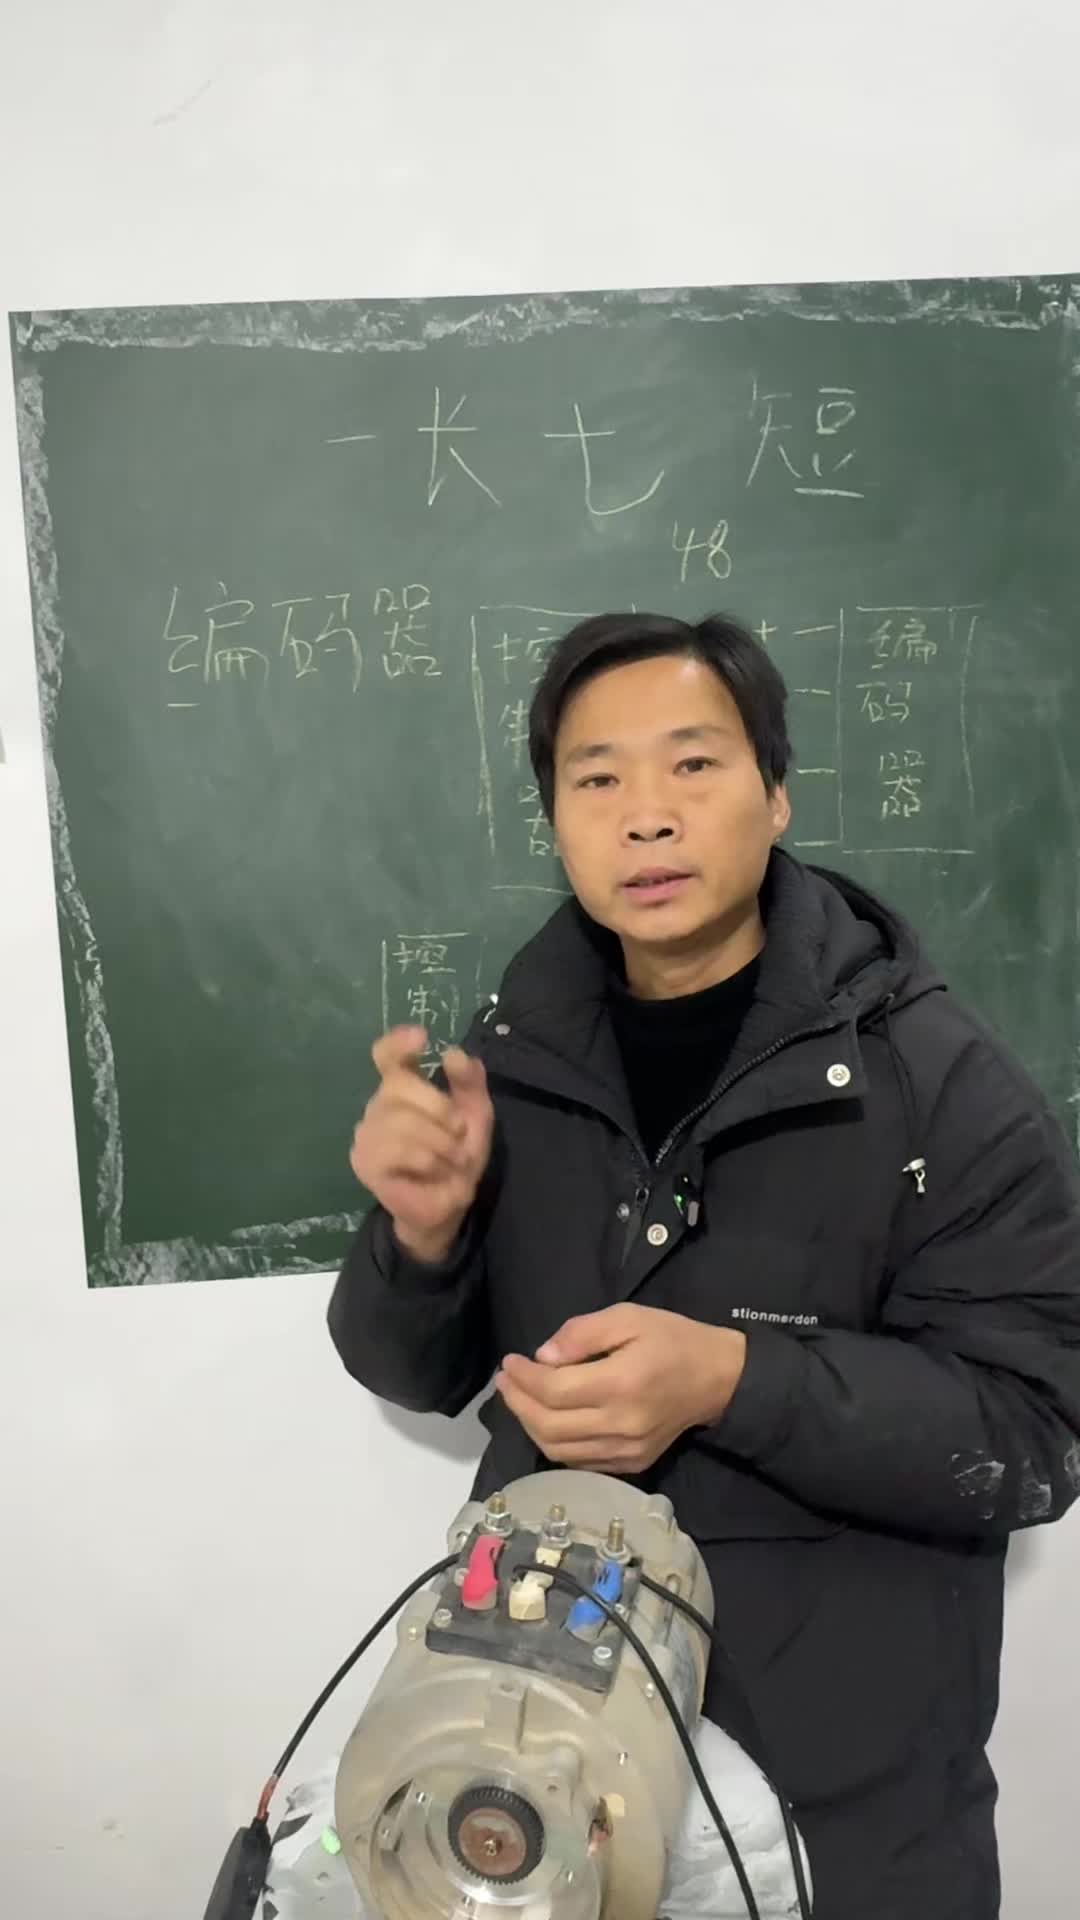 一长七短
48
编码器
控制器
编码器
控制
stionmerdon